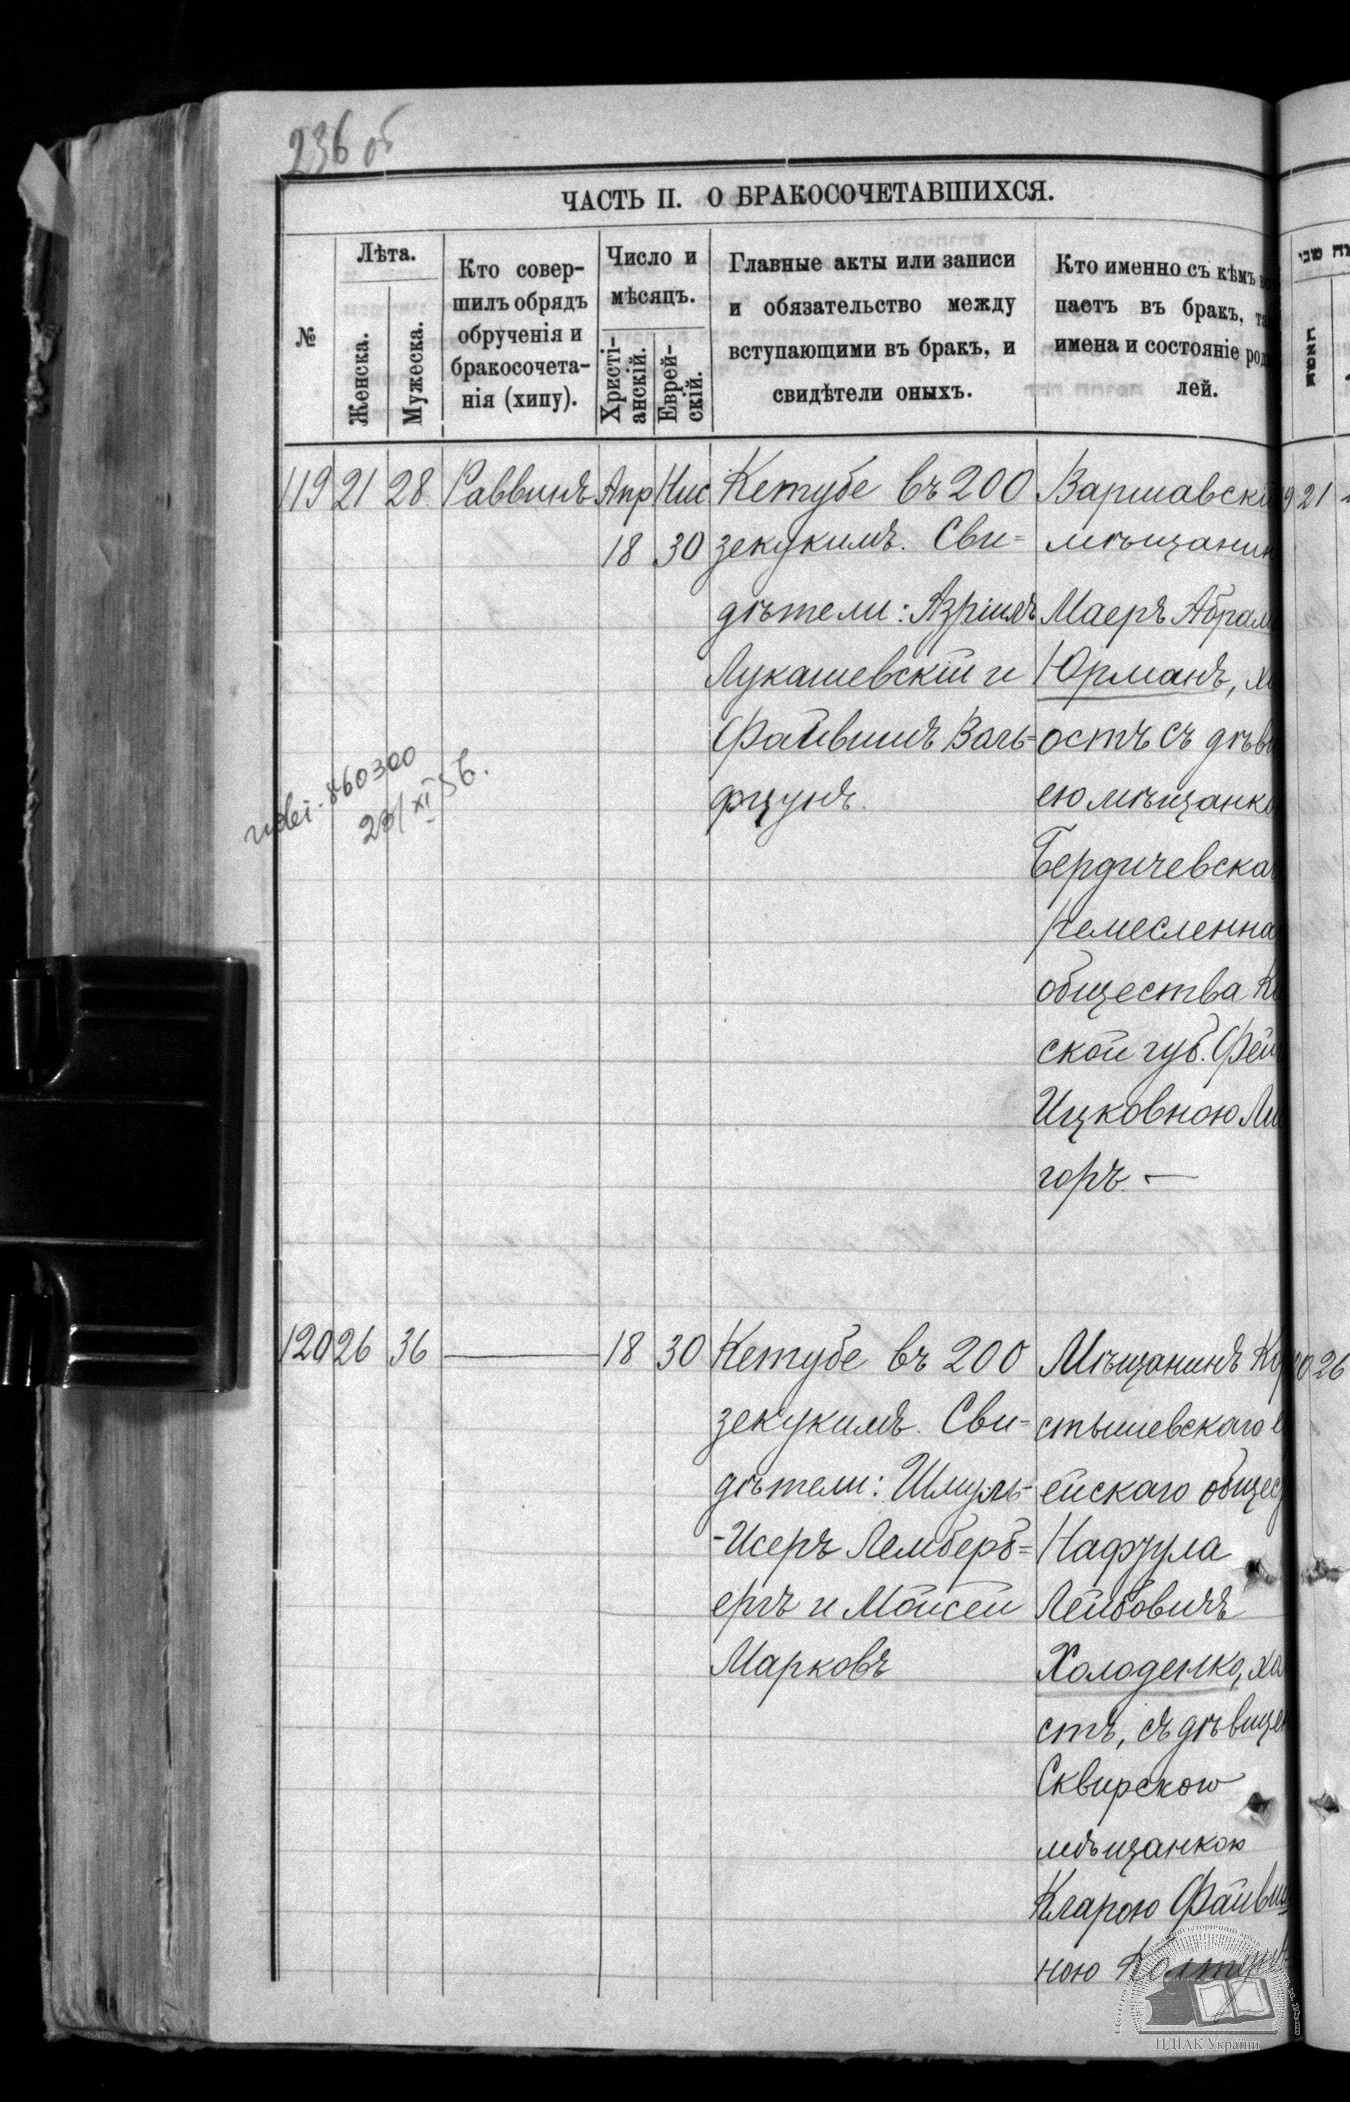 236 об
ЧАСТЬ II. О БРАКОСОЧЕТАВШИХСЯ.
№
Лѣта.
Женска.
Мужеска.
Кто совер-
шилъ обрядъ
обрученія и
бракосочета-
нія (хипу).
Число и
мѣсяцъ.
Христі-
анскій.
Еврей-
скій.
Главные акты или записи
и обязательство между
вступающими въ бракъ, и
свидѣтели оныхъ.
Кто именно съ кѣмъ
паетъ въ бракъ,
имена и состояніе род
лей.
119 21 28 Раввинъ Апр Нис
18 30
Кетубе въ 200
зекукимъ. Сви=
дѣтели: Азріилъ
Лукашевскій и
Файвишъ Валь=
фцунъ.
Варшавскі
мѣщанин
Маеръ Абрам
Юрманъ, хо
остъ съ дѣви
ею мѣщанко
Бердичевска
Ремесленна
общества Кі
ской губ. Фей
Ицковною Ли
горъ. —
860300
23/XI 56.
120 26 36 — 18 30
Кетубе въ 200
зекукимъ. Сви=
дѣтели: Шмуль-
-Исеръ Лемберб=
ергъ и Мойсей
Марковъ
Мѣщанинъ Ко
стышевскаго е
ейскаго общес
Нафтула
Лейбовичъ
Холоденко, хо
стъ, съ дѣвице
Сквирскою
мѣщанкою
Кларою Файвиш
ною
9 21
20 26
ЦДІАК України